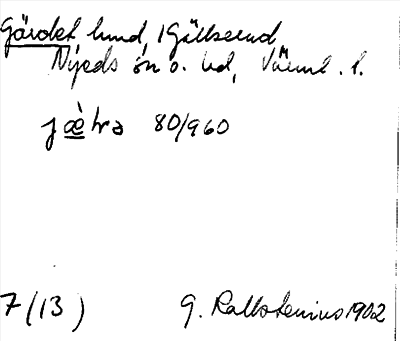 Gärdet lund, Gällserud
Nyeds sn o. hd, Värml. l.
jæ̀tra 80/960
7 (13) G. Kallstenius 1902